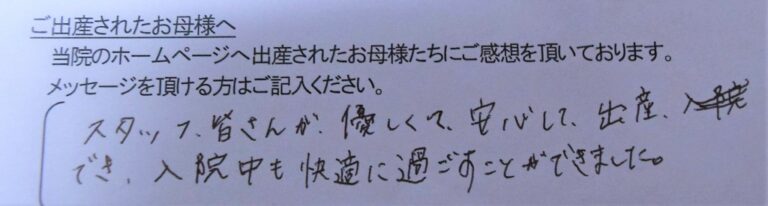 ご出産されたお母様へ
当院のホームページへ出産されたお母様たちにご感想を頂いております。
メッセージを頂ける方はご記入ください。
スタッフ、皆さんが、優しくて、安心して、出産、入院
でき、入院中も快適に過ごすことができました。